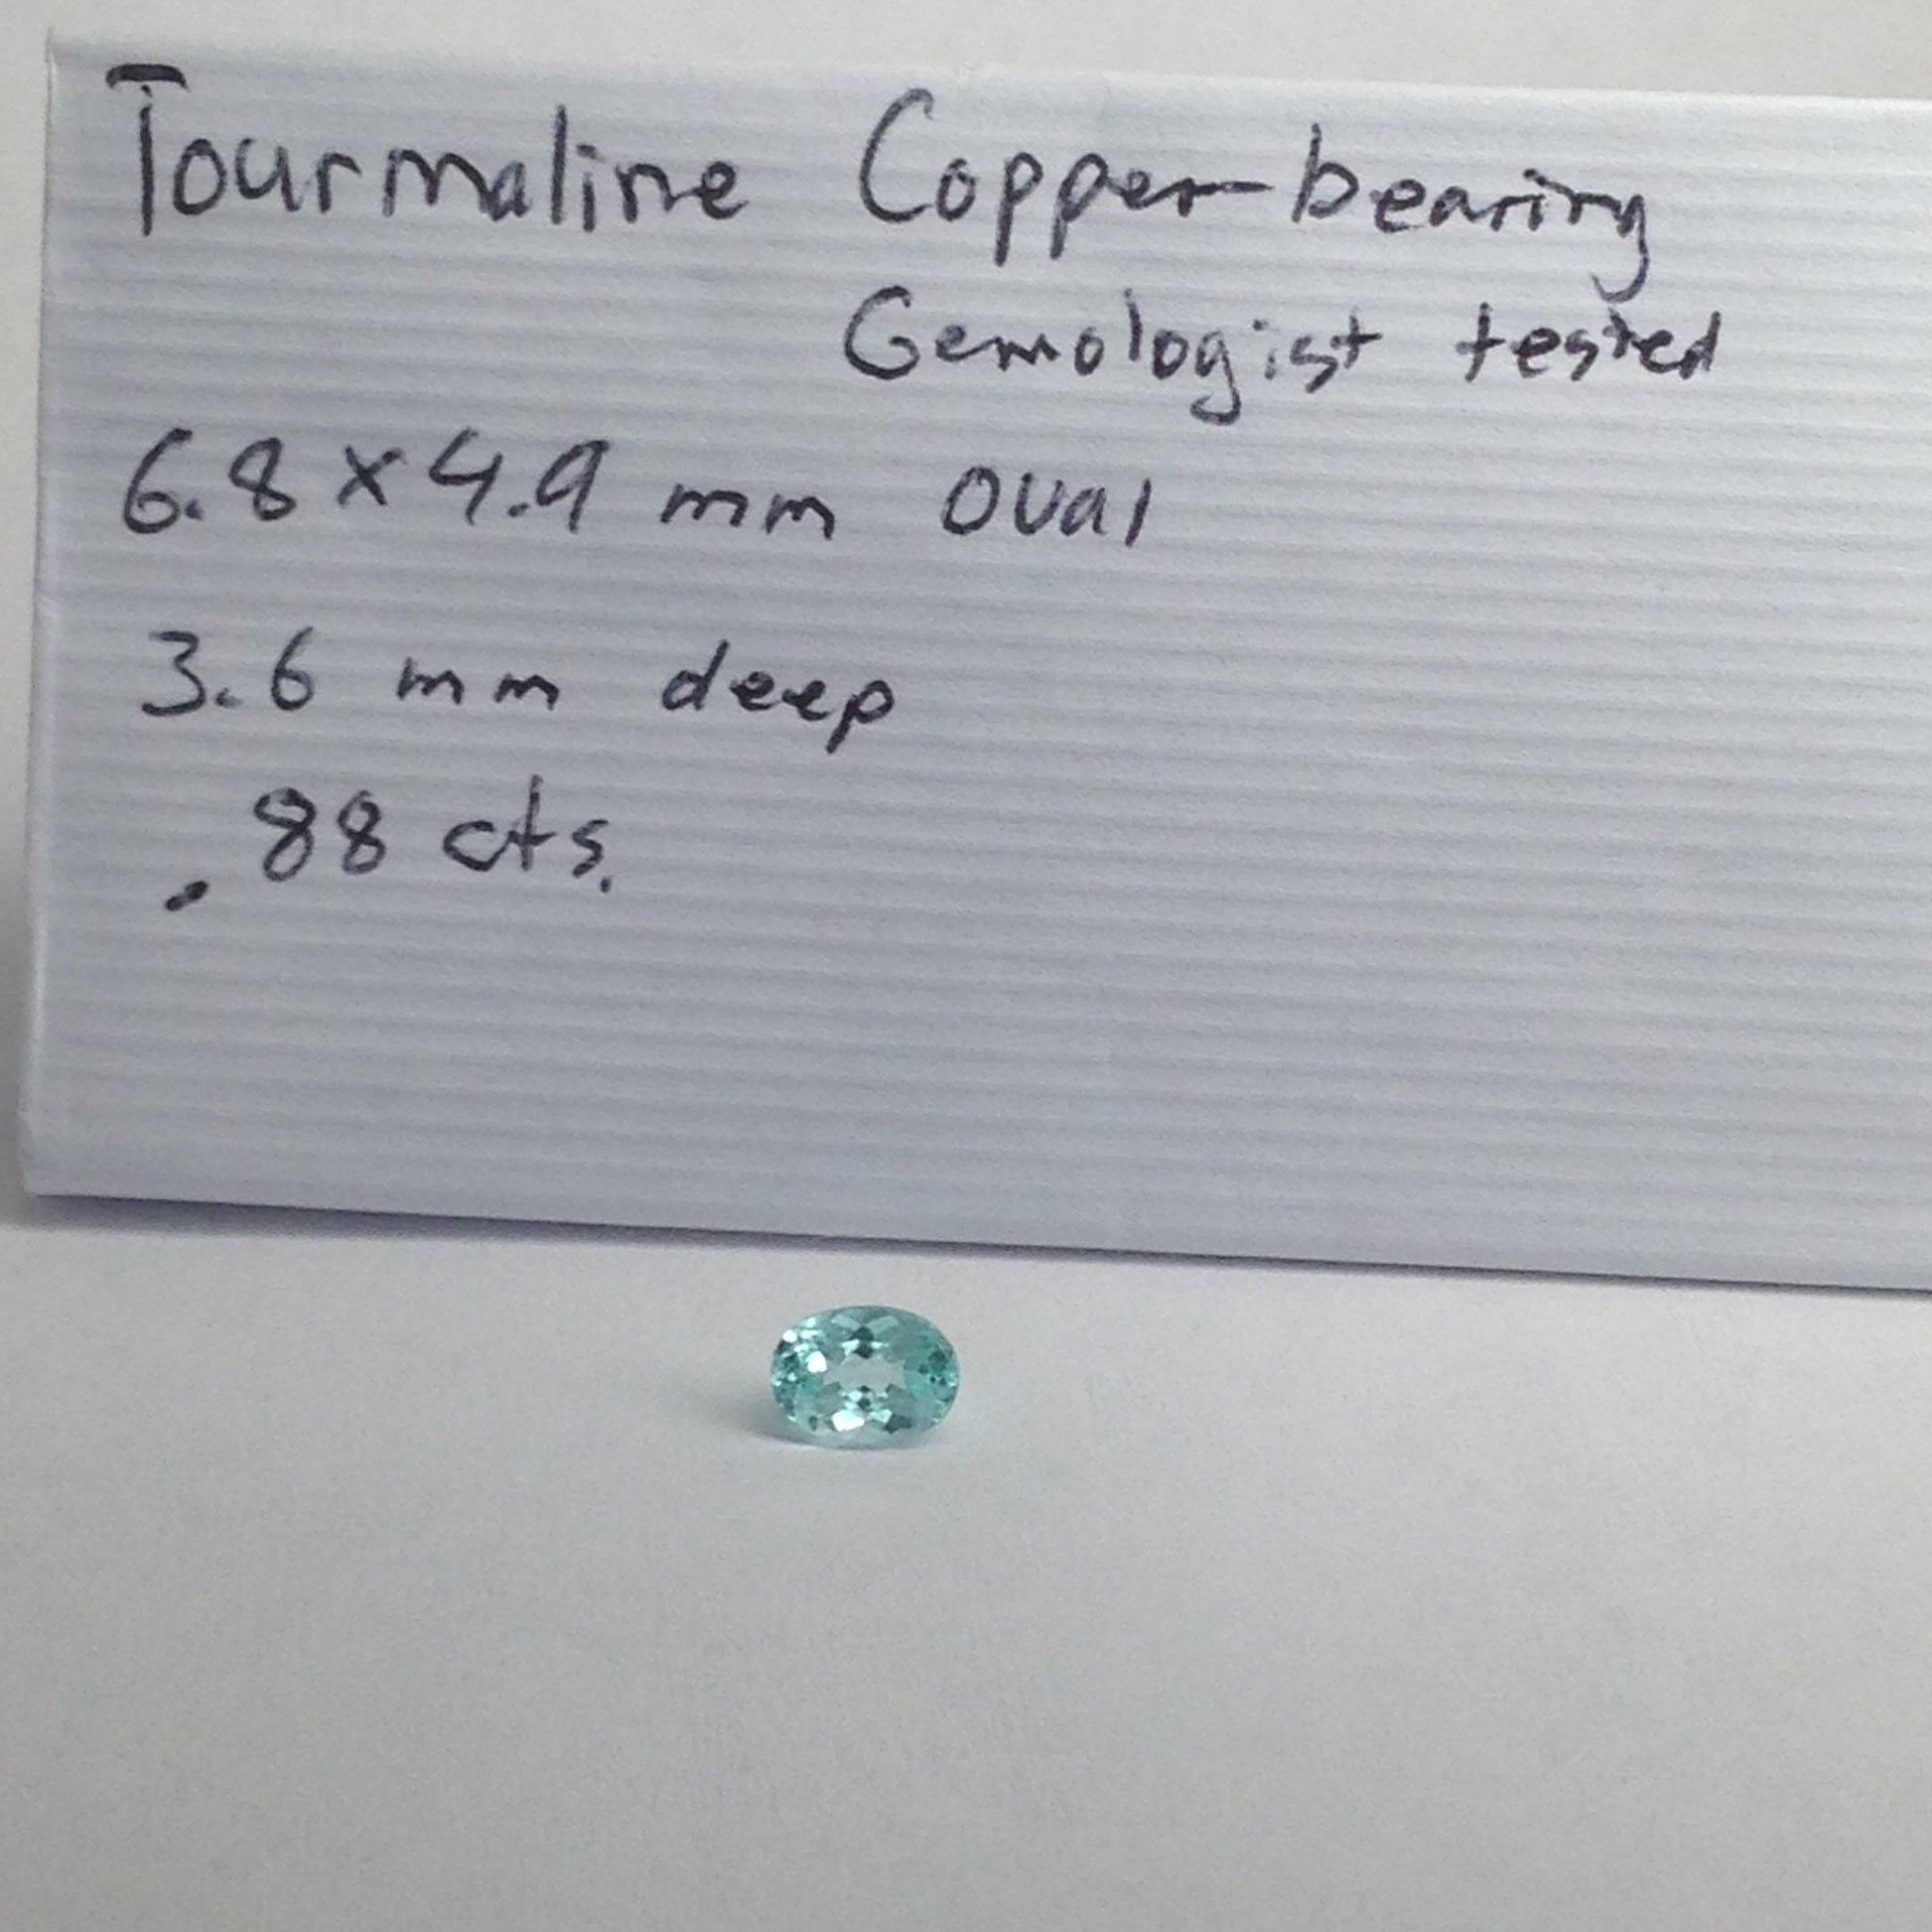 Tourmaline Copper-bearing
Gemologist tested
6.8 x 4.9 mm oval
3.6 mm deep
.88 cts.